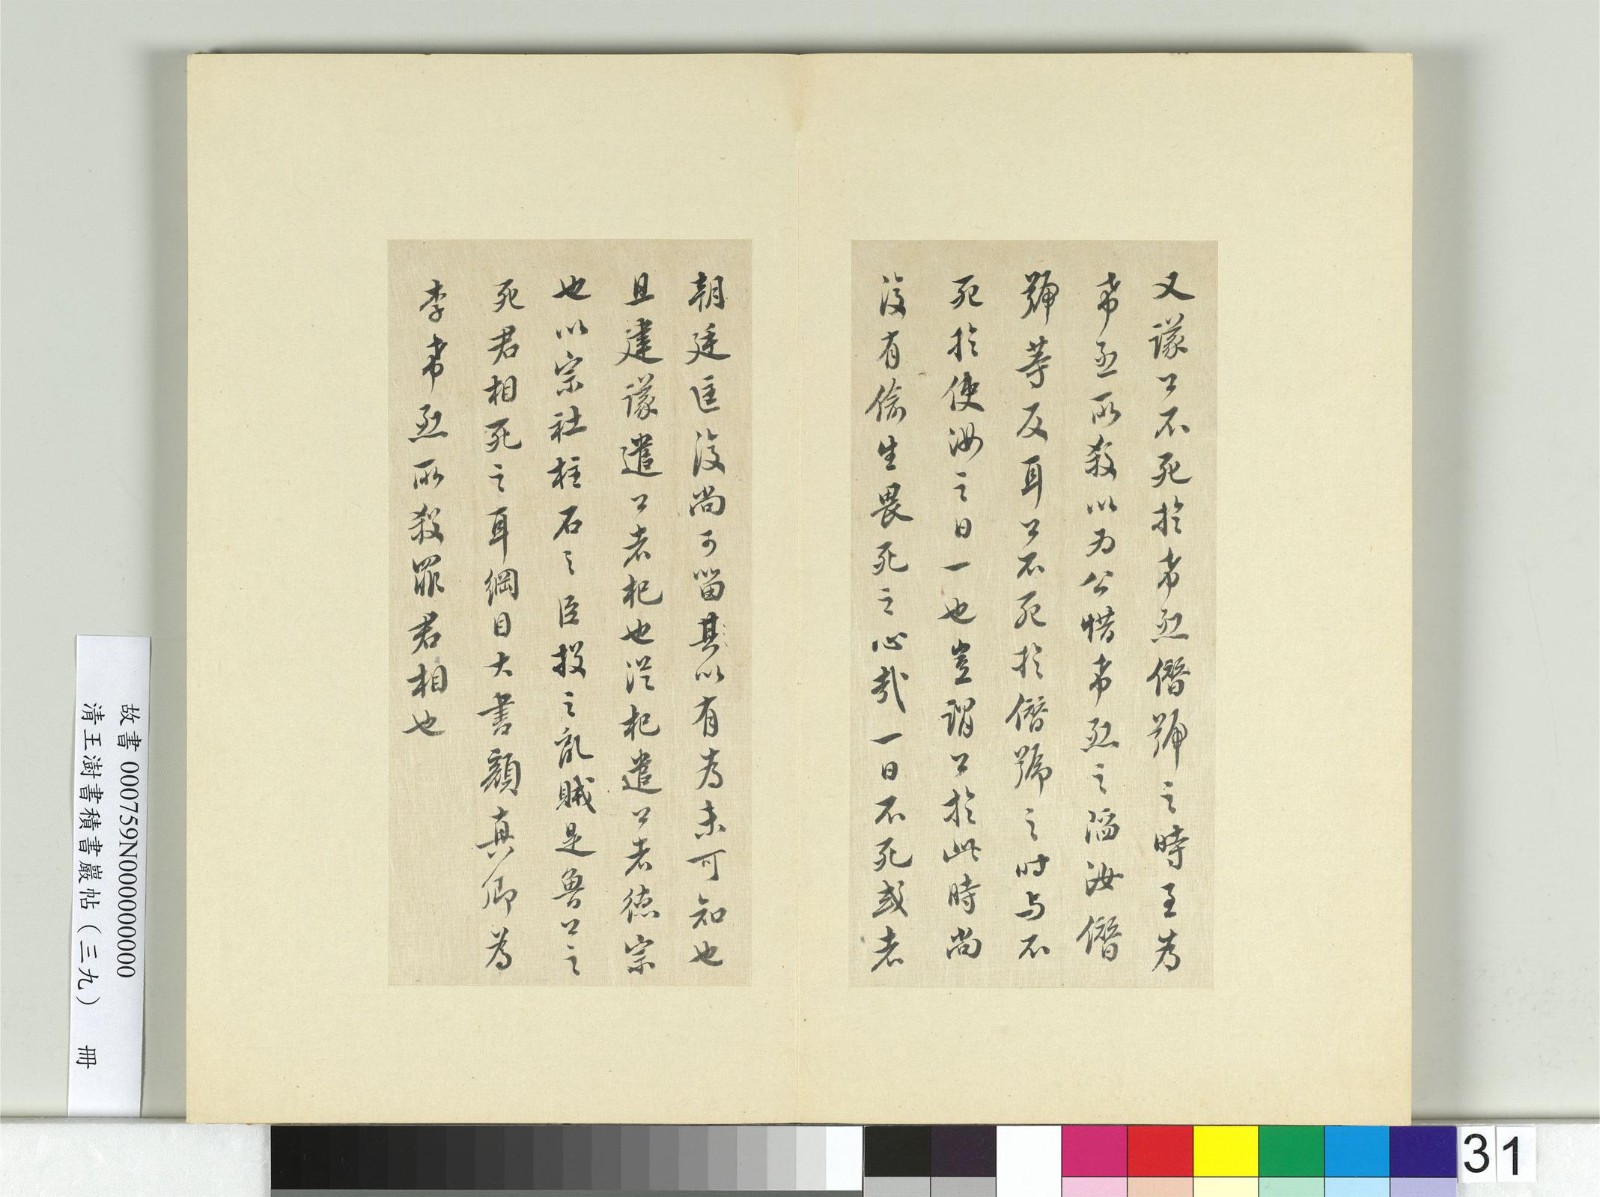 又議公不死於希烈僭號之時至為
希烈所殺以為公惜希烈之陷汝僭
號等反耳公不死於僭號之時与不
死於使汝之日一也豈謂公於此時尚
復有偷生畏死之心哉一日不死或者
朝廷匡復尚可留其以有為未可知也
且建議遣公者杞也從杞遣公者德宗
也以宗社柱石之臣投之亂賊是魯公之
死君相死之耳綱目大書顏真卿為
李希烈所殺罪君相也
故書 000759N000000000
清王澍書積書巖帖(三九) 冊
31